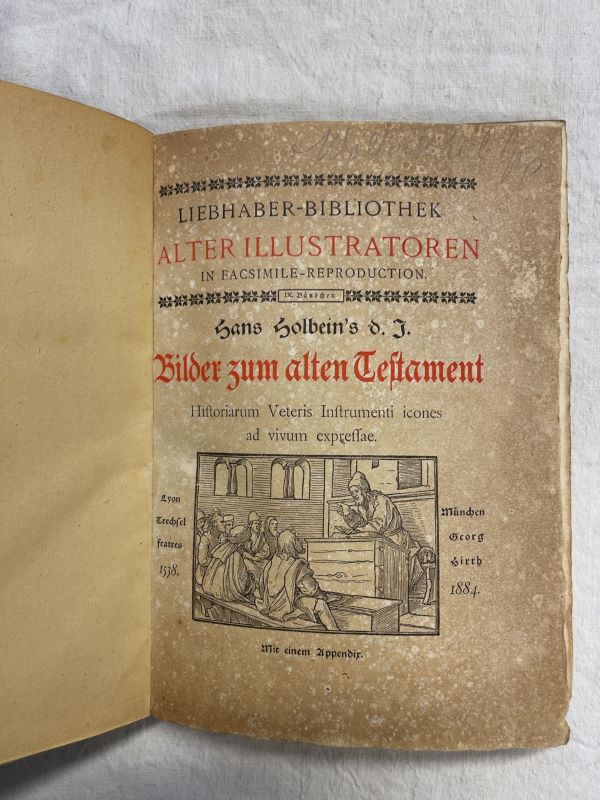 LIEBHABER-BIBLIOTHEK
ALTER ILLUSTRATOREN
IN FACSIMILE-REPRODUCTION.
IX. Bändchen
Hans Holbein's d. J.
Bilder zum alten Teſtament
Hiſtoriarum Veteris Inſtrumenti icones
ad vivum expreſſae.
Lyon
Trechſel
fratres
1538.
München
Georg
Hirth
1884.
Mit einem Appendix.